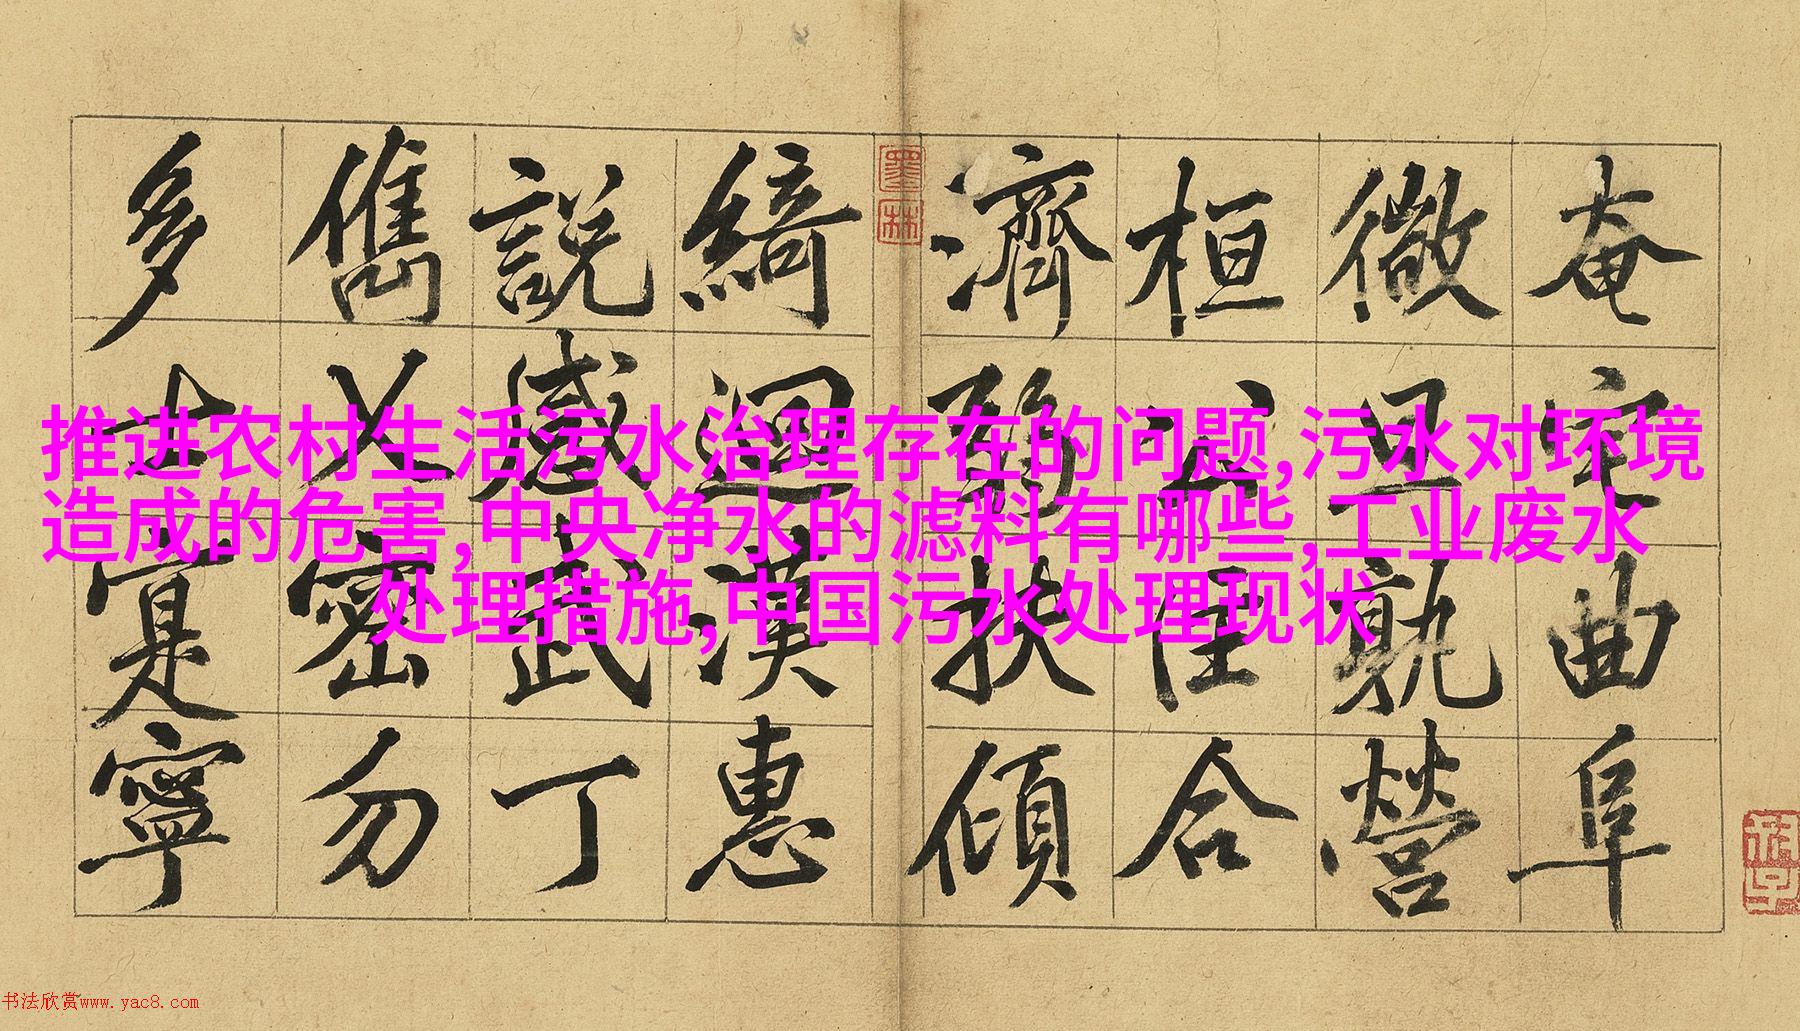 奄宅曲阜
微旦孰營
桓公匡合
濟弱扶傾
墨林
綺迴漢惠
說感武丁
儁乂密勿
多士寔寧
推进农村生活污水治理存在的问题,污水对环境
造成的危害,中央净水的滤料有哪些,工业废水
处理措施,中国污水处理现状
书法欣赏www.yac8.com